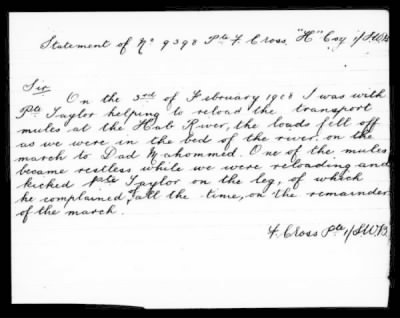 Statement of No 9398 Pte F. Cross. "H" Coy 1/S.W.B.
Sir
On the 3rd of February 1908 I was with
Pte Taylor helping to reload the transport
mules at the Hab River, the loads fell off
as we were in the bed of the river, on the
march to Dad Mahommed. One of the mules
became restless while we were reloading and
kicked Pte Taylor on the leg, of which
he complained, all the time, on the remainder
of the march.
F. Cross Pte 1/S.W.B.